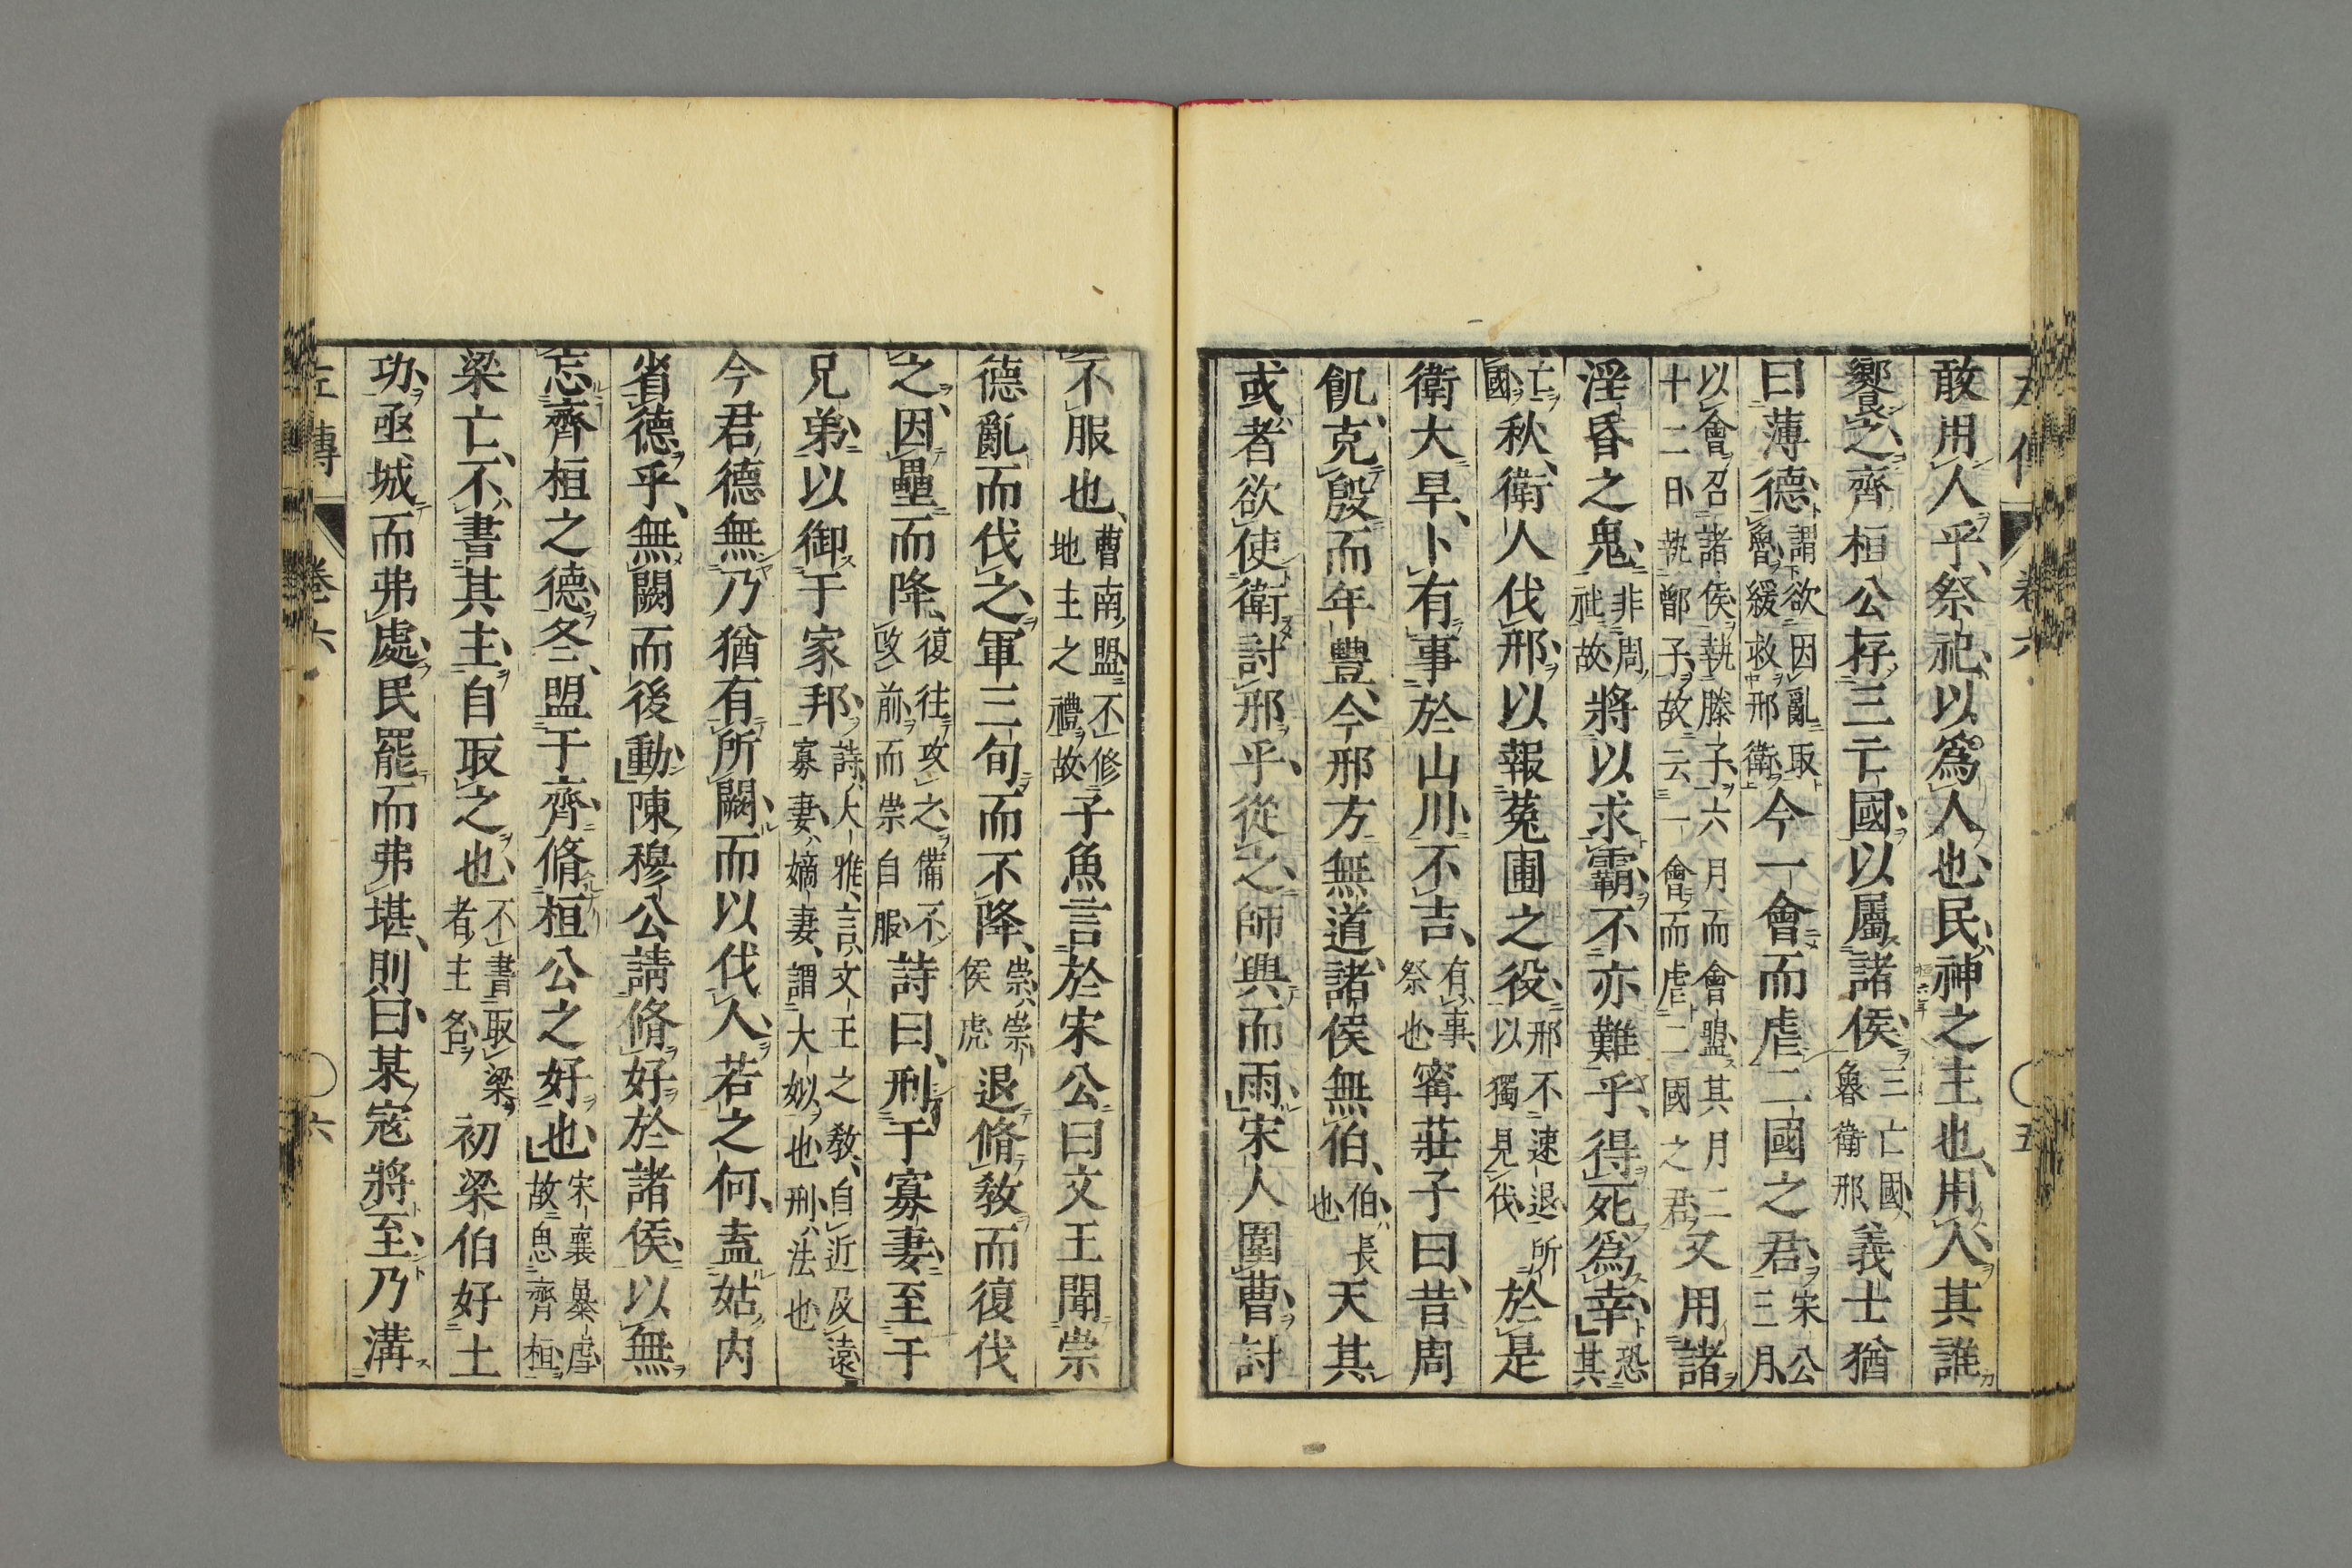 敢用人乎、祭祀以爲人也、民神之主也、用人其誰
饗之、齊桓公存三亡國、以屬諸侯、三亡國、魯衛邢、義士猶
曰薄德、謂欲因亂取魯、緩救邢衛、今一會而虐二國之君、宋公三月、
以會召諸侯、執滕子、六月而會盟、其月二十二日、執鄫子、故云一會而虐二國之君、又用諸
淫昏之鬼、非周社、故、將以求霸、不亦難乎、得死爲幸、恐其
亡國、秋、衛人伐邢、以報菟圃之役、邢不速退、所以獨見伐、於是
衛大旱、卜有事於山川、不吉、有事、祭也、甯莊子曰、昔周
飢、克殷而年豐、今邢方無道、諸侯無伯、伯、長也、天其
或者欲使衛討邢乎、從之、師興而雨、宋人圍曹、討
左傳 卷六 五
不服也、曹南盟、不修地主之禮故、子魚言於宋公曰、文王聞崇
德亂而伐之、軍三旬而不降、崇、崇侯虎、退脩教而復伐
之、因壘而降、復往攻之、備不改前、而崇自服、詩曰、刑于寡妻、至于
兄弟、以御于家邦、詩、大雅、言文王之教、自近及遠、寡妻、嫡妻、謂大姒也、刑、法也
今君德無乃猶有所闕、而以伐人、若之何、盍姑內
省德乎、無闕而後動、陳穆公請脩好於諸侯、以無
忘齊桓之德、冬、盟于齊、脩桓公之好也、宋襄暴虐、故思齊桓、
梁亡、不書其主、自取之也、不書取梁者主名、初梁伯好土
功、亟城而弗處、民罷而弗堪、則曰、某寇將至、乃溝
左傳 卷六 六